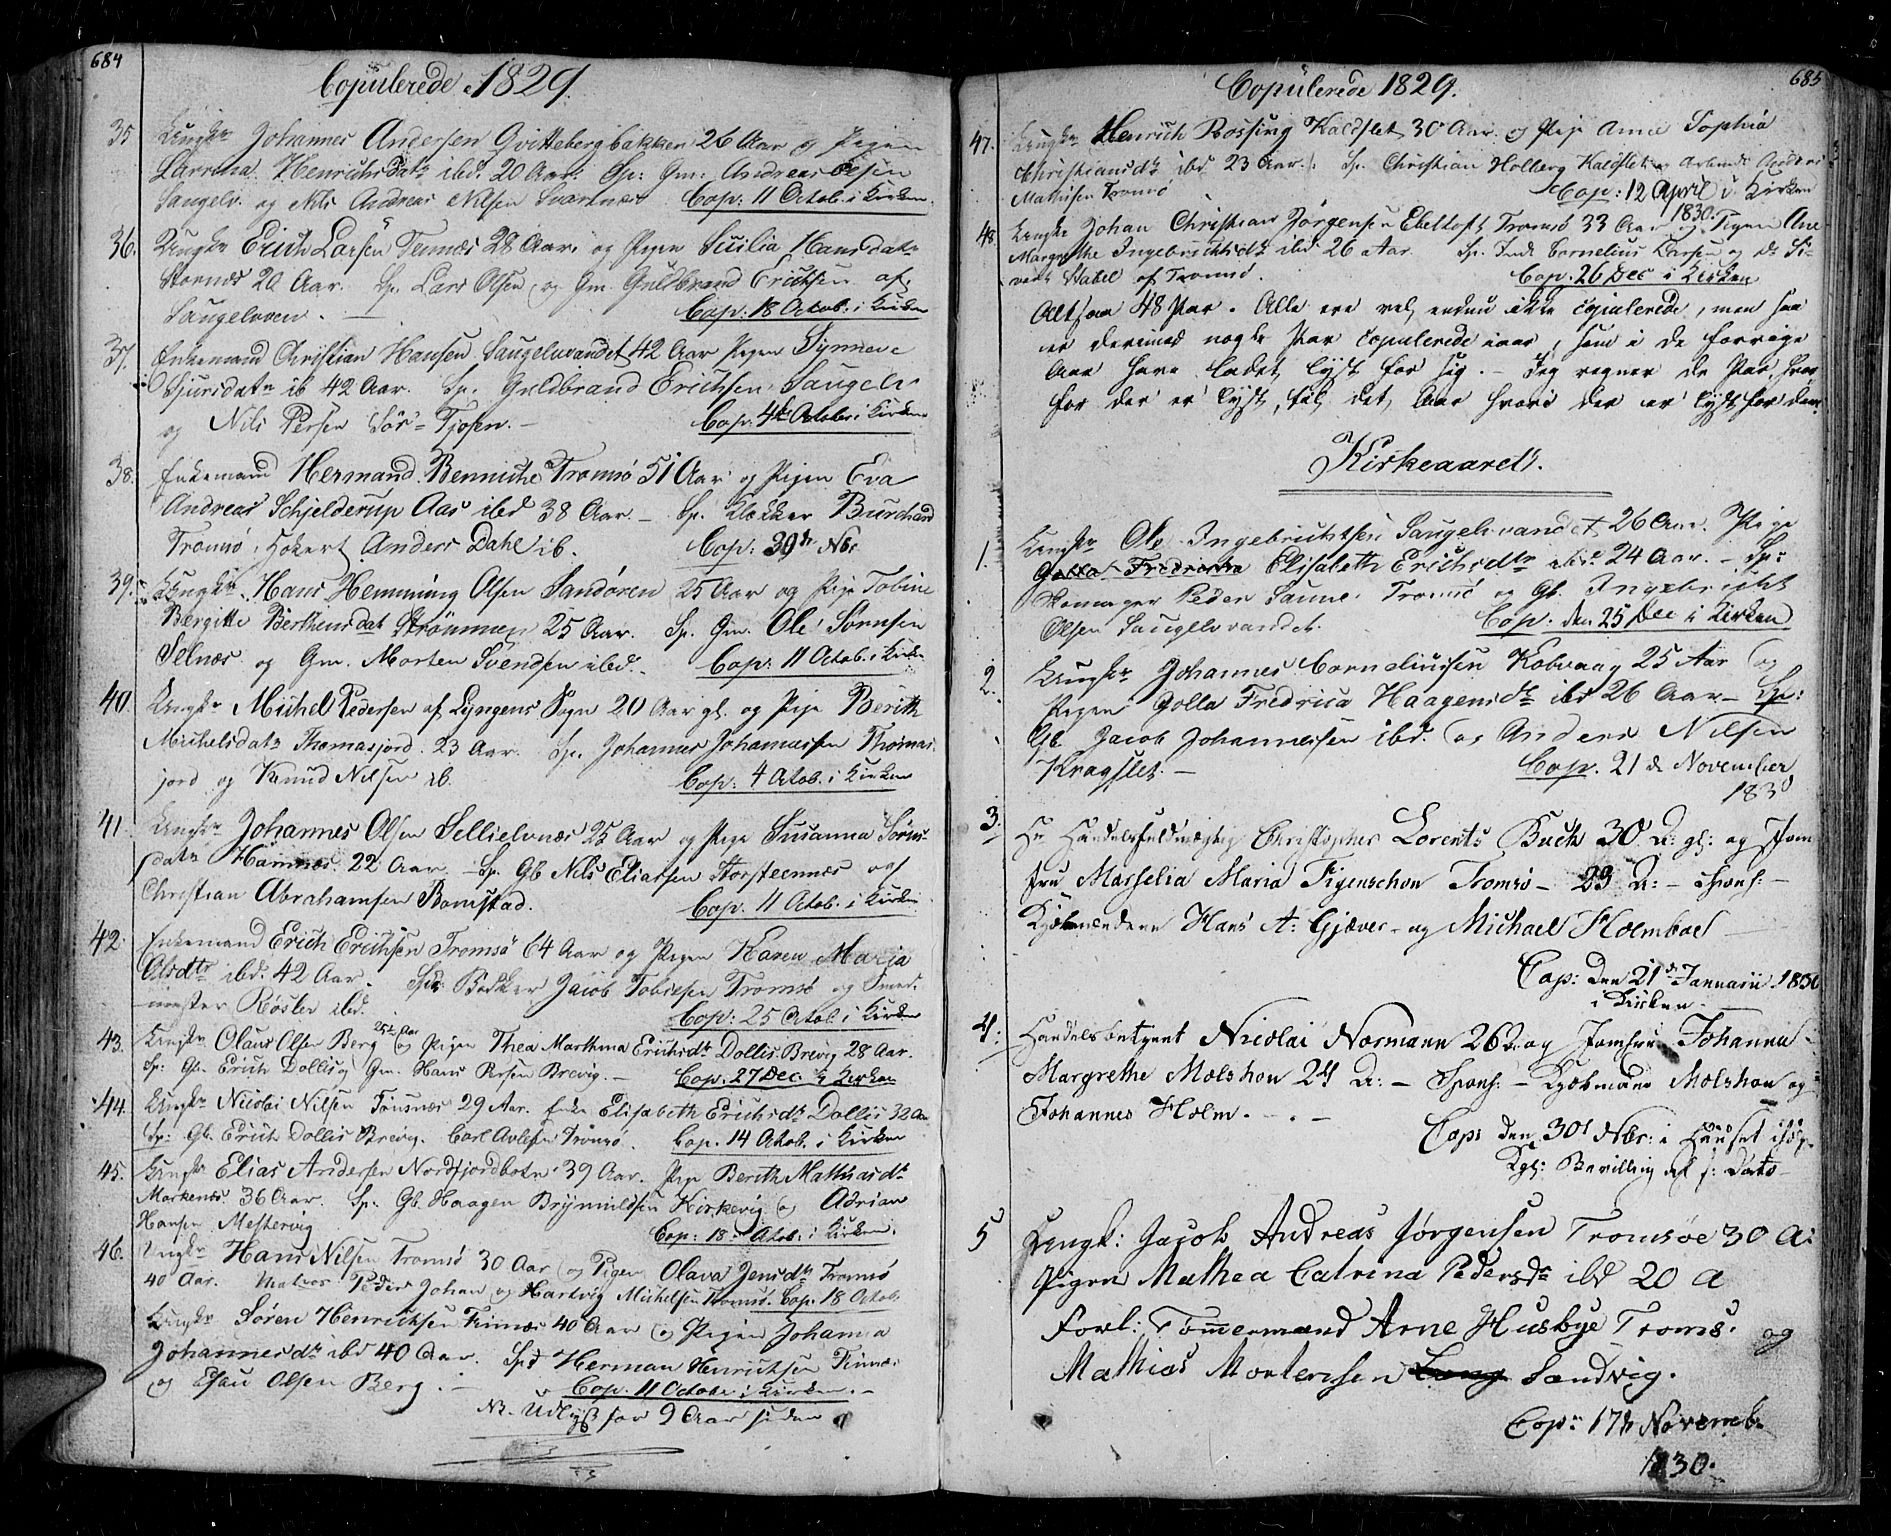 684
Copulerede 1829.
35 Ungkr Johannes Andersen Qvittebergbakken 26 Aar og Pigen
Lavrina Henrichsdatr ibd. 20 Aar. Sp: Gm: Andreas Olsen
Saugelv. og Nils Andreas Nilsen Svartnes Cop: 11 Octob. i Kirken.
36. Ungkr Erich Larsen Tennæs 28 Aar. og Pigen Sicilia Hansdatr
Stornæs 20 Aar. Sp. Lars Olsen og Gm. Guldbrand Erichsen af
Saugelven. Cop: 18 Octob: i Kirken
37. Enkemand Christian Hansen Saugelvvandet 42 Aar Pigen Synneve
Sjursdatr ib 42 Aar. Sp. Guldbrand Erichsen Saugelv
og Nils Persen Sør-Tjosen. Cop. 4de October i Kirken
38. Enkemand Hermand Benniche Tromsö 51 Aar og Pigen Eva
Andreas Schjelderup Aas ibd 38 Aar. Sp. Klokker Burchard
Tromsö, Hokert Anders Dahl ib. Cop: 30te Nbr
39. Ungkr. Hans Hemming Olsen Sandören 25 Aar og Pige Tobine
Bergitte Berthensdat Strömmen 25 Aar. Sp. Gm. Ole Svensen
Selnæs og Gm. Morten Svendsen ibd. Cop: 11 Octob. i Kirken
40. Ungkr Michel Pedersen af Lyngens Sogn 20 Aar gl. og Pige Berith
Michelsdatr Thomasjord. 23 Aar. Sp. Johannes Johannesen Thomas
jord og Knud Nilsen ib. Cop: 4 Octob. i Kirken
41. Ungkr Johannes Olsen Sellielvnæs 25 Aar og Pige Susanna Sörens
datr Hamnæs 22 Aar. Sp. Gb Nils Eliassen Storsteennæs og
Christian Abrahamsen Bomstad. Cop. 11 Octob. i Kirken
42. Enkemand Erich Erichsen Tromsö 64 Aar og Pigen Karen Maria
Olsdtr ibd. 42 Aar. Sp: Bödker Jacob Tobiesen Tromsö og Smed
mester Rösler ibd. Cop: 25 Octob. i Kirken
43. Ungkr Olaus Olsen Berg 25 Aar og Pigen Thea Marthina Erichsdtr Dollis Brevig 28 Aar.
Sp: Gb. Erich Dollis og Gm. Hans Persen Brevig. Cop: 27 Dec. i Kirken
44. Ungkr Nicolai Nilsen Tönsnæs 29 Aar. Enke Elisabeth Erichsdtr Dollis 32 Aar
Sp: Gb. Erich Dollis Brevig. Carl Avelsen Tromsö. Cop. 14 Octob. i Kirken
45. Ungkr Elias Andersen Nordfjordbotn 39 Aar. Pige Berith Mathisdtr
Markenæs 36 Aar. Sp. Gb. Haagen Brynnildsen Kirkevig og Adrian
Hansen Mestervig Cop: 18 Octob. i Kirken.
46. Ungkr Hans Nilsen Tromsö 30 Aar og Pigen Olava Jensdtr Tromsö
40 Aar. Matros Peder Johan og Hartvig Michelsen Tromsö. Cop. 18 Octob.
Ungkr Sören Henrichsen Finnæs 40 Aar og Pigen Johanna
Johannesdtr ibd 40 Aar. Sp: Herman Henrichsen Finnæs
og Esau Olsen Berg. Cop. 11 Octobr i Kirken.
NB. Udlyst for 9 Aar siden
685
Copulerede 1829.
47. Ungkr Henrich Rossing Kaldslet 30 Aar. og Pige Anne Sophia
Christiansdtr ibd 23 Aar. Sp. Christian Holberg Kaldslet og Arbeidsm
Mathisen Tromsö Cop: 12 April i Kirken
1830.
48. Ungkr Johan Christian Jörgensen Ebeltoft Tromsö 33 Aar og Pigen Ane
Margrethe Ingebrichtsdtr ibd 26 Aar. Sp. Cornelius Larsen og Si-
vert Stabel af Tromsö. Cop. 26 Dec i Kirken
Altsaa 48 Par. Alle ere vel endnu ikke copulerede, men saa
er derimod nogle Par copulerede iaar, som i de forrige
Aar have ladet lyst for sig. Jeg regner de Par hvor
for der er lyst, til det Aar hvori der er lyst for dem.
Kirkeaaret.
1. Ungkr Ole Ingebrichtsen Saugelvvandet 26 Aar. Pige
Golla Fredrocka Elisabeth Erichsdtr ibd. 24 Aar. Sp:
Skomager Peder Saune Tromsö og Gb. Ingebricht
Olsen Saugelvvandet. Cop: den 25 Dec i Kirken
2. Ungkr Johannes Corneliussen Kobvaag 25 Aar og
Pigen Golla Fredrica Haagensdtr ibd 26 Aar. Sp:
Gb Jacob Johannesen ibd. og Anders Nilsen
Kragslet. Cop. 21de November
1830
3. Hr Handelsfuldmægtig Christopher Lorents Buck 30 A: gl: og Jom
fru Masselia Maria Figenschou Tromsö 23 A: Spons:
Kjöbmændene Hans A: Gjæver og Michael Holmboe
Cop: den 21de Januarii 1830
i Kirken.
4. Handelsbetjent Nicolai Normann 26 A: og Jomfru Johanna
Margrethe Molshou 24 A: Spons: Kjöbmand Molshou og
Johannes Holm.
Cop: den 30te Nbr: i Huuset ifølge
Kgl: Bevilling af s: Dato
5 Ungk: Jacob Andreas Jørgensen Tromsøe 30 A:
Pigen Mathea Catrina Pedersdr ibd 20 A
Forl: Tømmermand Arne Husbye Troms. og
Mathias Mortensen Sandvig.
Cop: 17de Novemb.
1830.